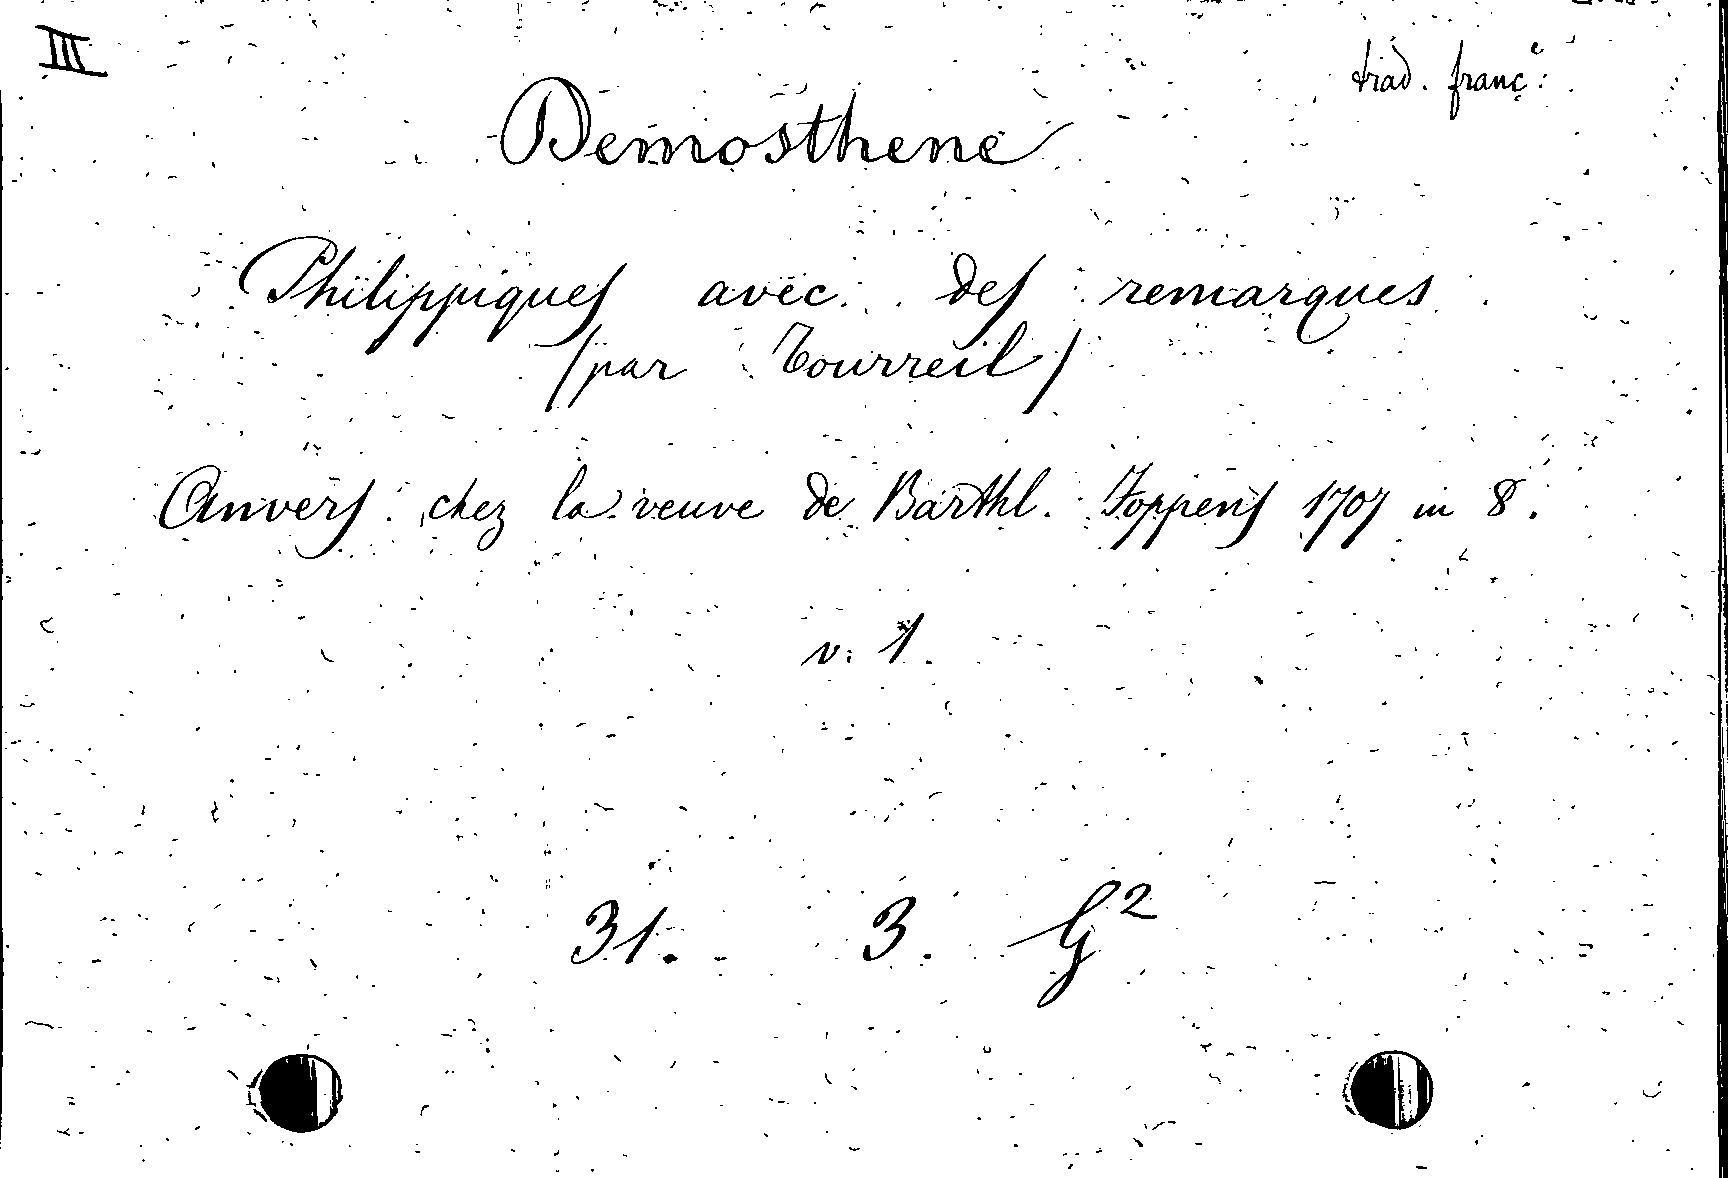 III
trad. franç.e
Demosthene
Philippiques avec des remarques
(par Tourreil)
Anvers chez la veuve de Barthl. Foppens 1707 in 8.
v. 1.
31. 3. G2